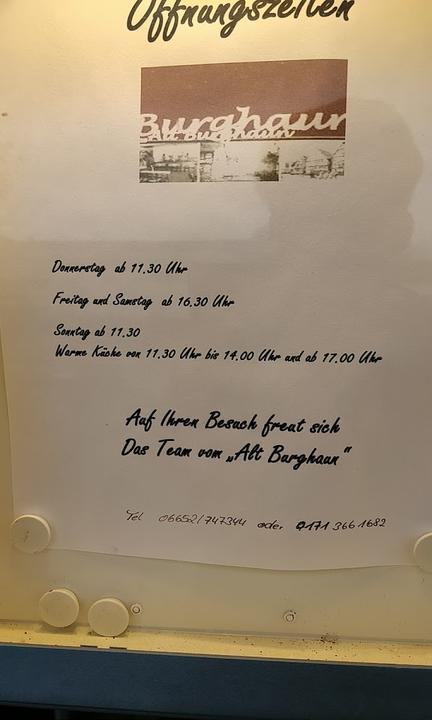 Öffnungszeiten
Burghaun
Alt Burghaun
Donnerstag ab 11.30 Uhr
Freitag und Samstag ab 16.30 Uhr
Sonntag ab 11.30
Warme Küche von 11.30 Uhr bis 14.00 Uhr und ab 17.00 Uhr
Auf Ihren Besuch freut sich
Das Team vom „Alt Burghaun“
Tel 06652/747344 oder 0171 366 1682